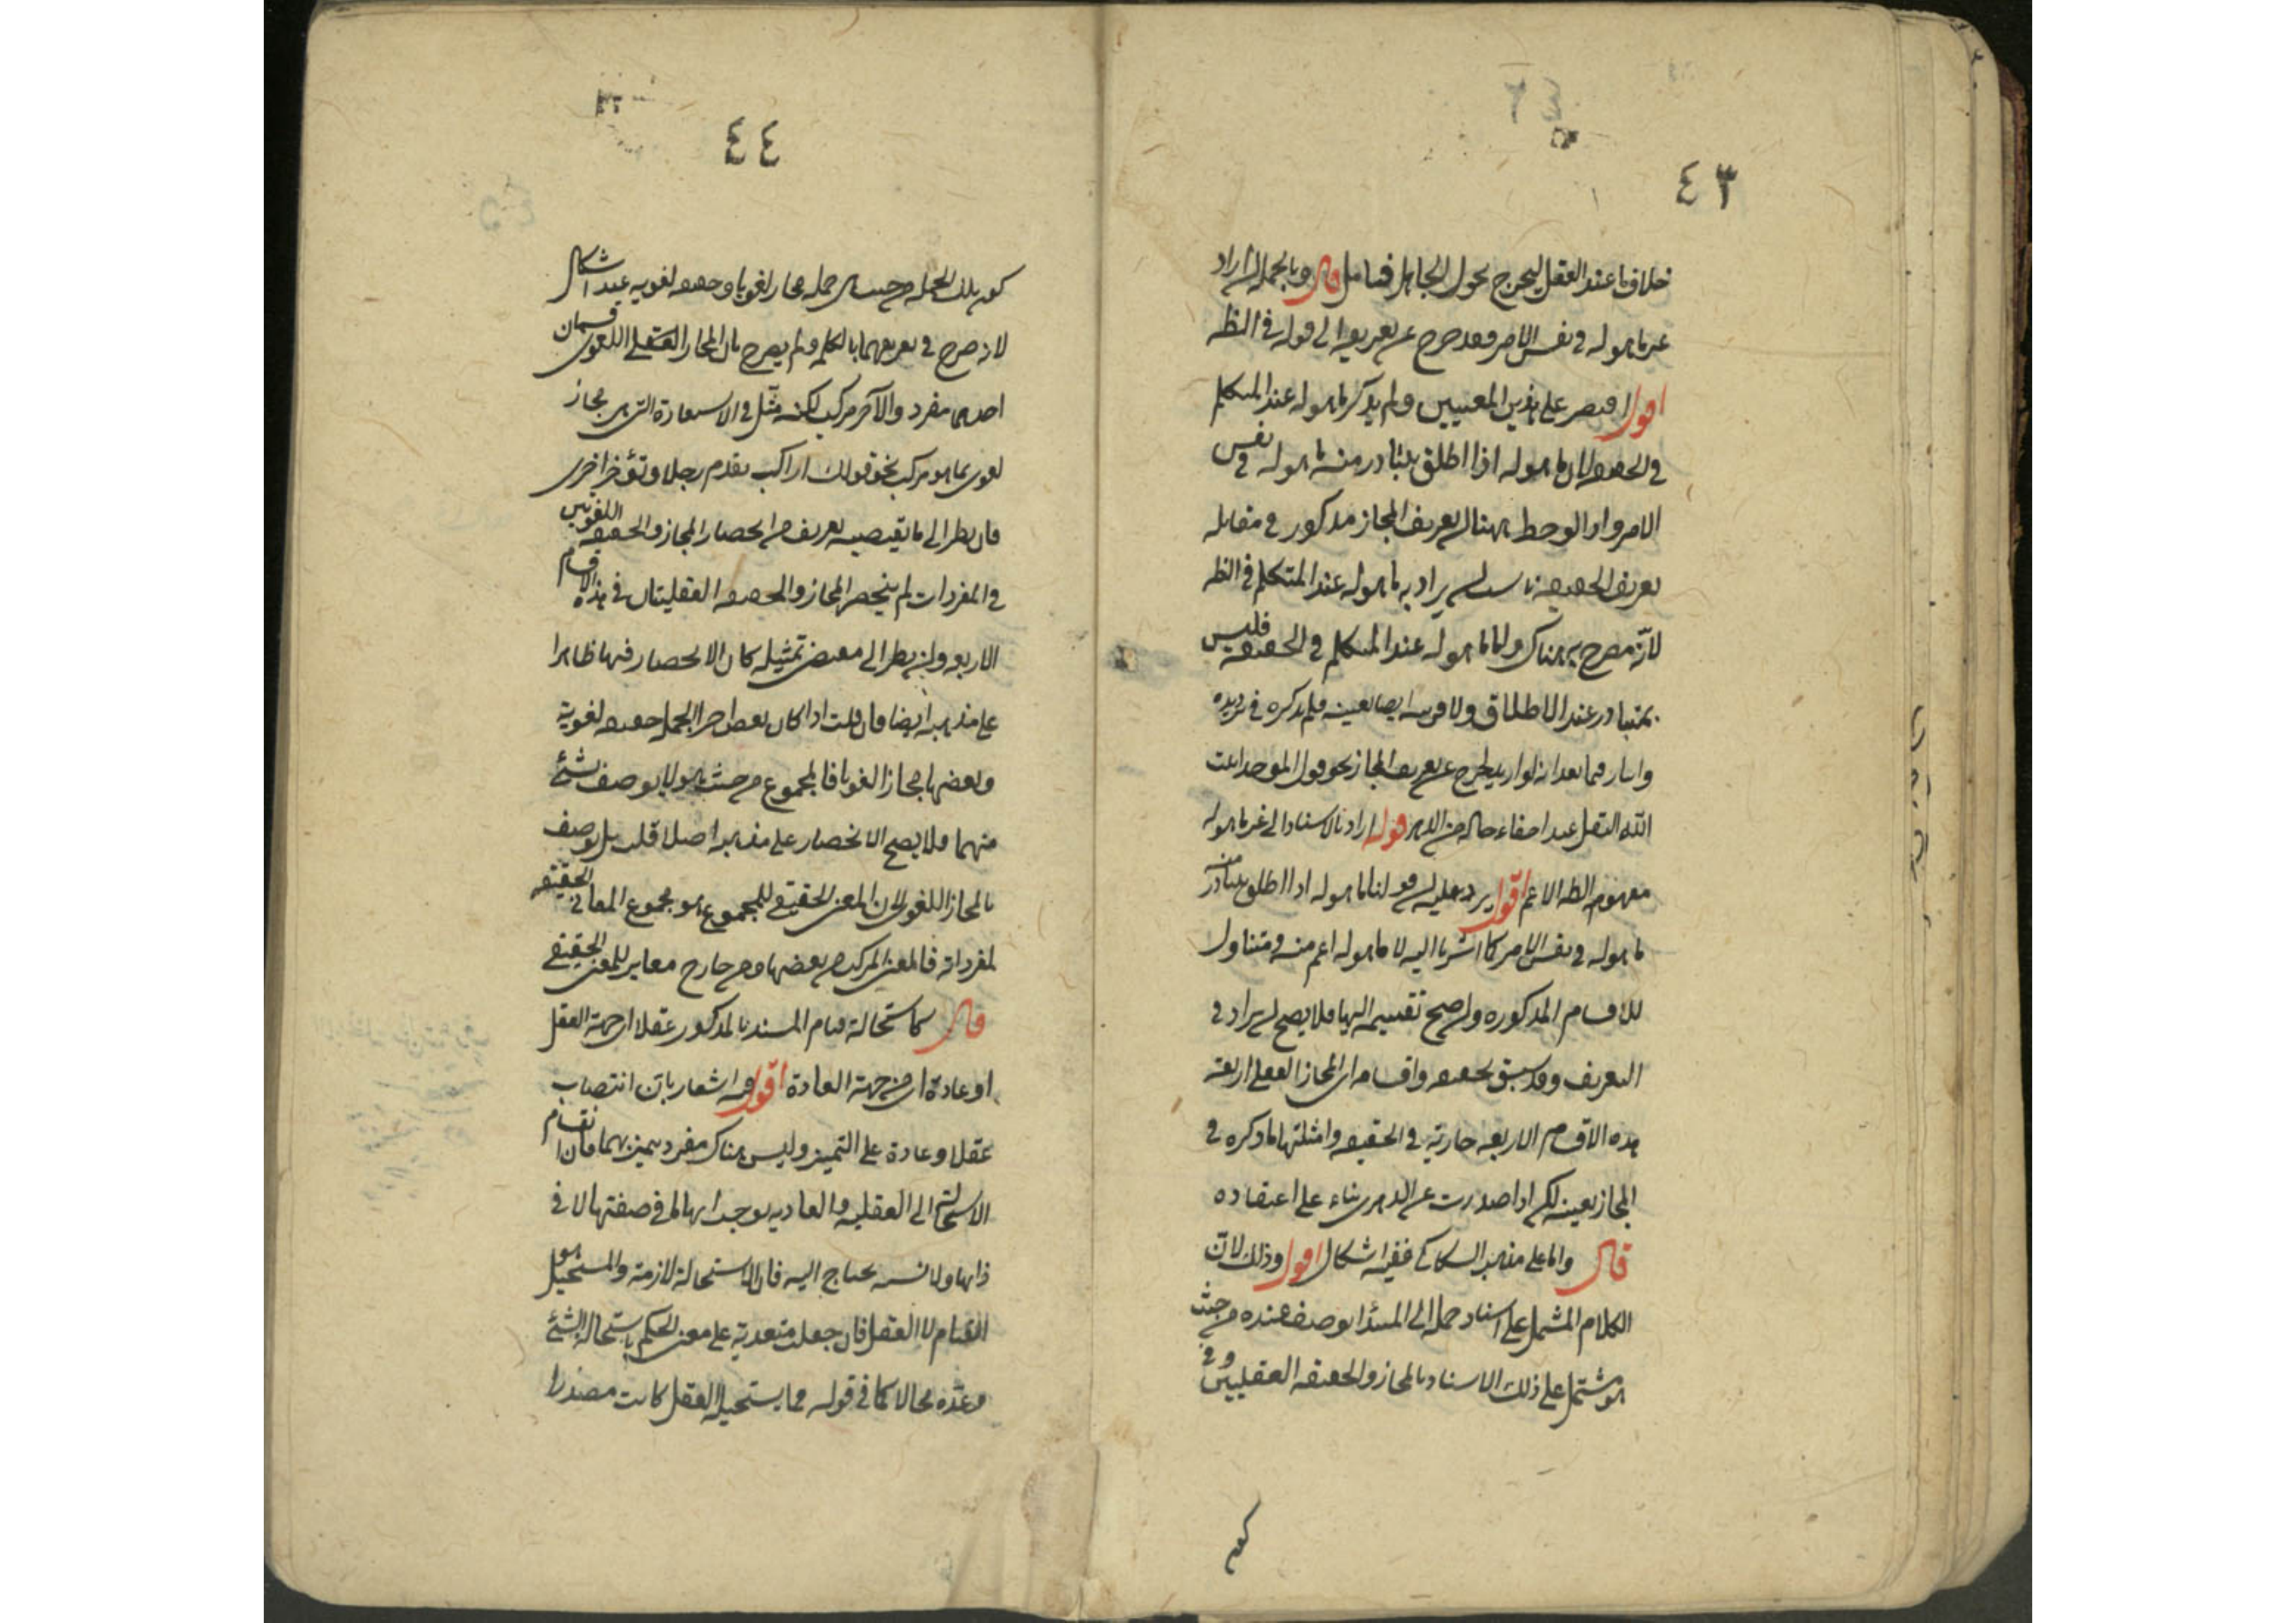 ٤٣
خلاف ما عند العقل ليخرج نحو قول الجاهل فتامل قال وبالجملة ان اراد
غير ما هو له في نفس الامر فقد خرج عن تعريفه الى قوله في الظ
اقول اقتصر على هذين المعنيين ولم يذكر ما هو له عند المتكلم
في الحقيقة لان ما هو له اذا اطلق يتبادر منه ما هو له في نفس
الامر واو الوحظ ههنا ان تعريف المجاز مذكور في مقابلة
تعريف الحقيقة ناسب ان يراد به ما هو له عند المتكلم في الظ
لانه مصرح به هناك واما ما هو له عند المتكلم في الحقيقة فليس
بمتبادر عند الاطلاق ولا قرينة ايضا تعينه فلم يذكره في ترديده
واشار فيما بعد انه لو اريد لخرج عن تعريف المجاز نحو قول الموحد انبت
الله البقل عند اخفاء حاله من الدهر قوله اراد بالاسناد الى غير ما هو له
مفهوم الظ الاعم اقول يرد عليه ان قولنا ما هو له اذا اطلق يتبادر منه
ما هو له في نفس الامر كما اشرنا اليه لا ما هو له اعم منه ومتناول
للاقسام المذكورة وان صح تقسيمه اليها فلا يصح ان يراد في
التعريف وقد سبق تحقيقه واقسامه اى المجاز العقلي اربعة
هذه الاقسام الاربعة جارية في الحقيقة وامثلتها ما ذكره في
المجاز بعينه لكن اذا صدرت عن الدهرى بناء على اعتقاده
قال واما على مذهب السكاكي ففيه اشكال اقول وذلك لان
الكلام المشتمل على اسناد جملة الى المبتدا يوصف عنده من حيث
هو مشتمل على ذلك الاسناد بالمجاز والحقيقة العقليين وفي
كون
٤٤
كون تلك الجملة من حيث هي جملة مجازا لغويا وحقيقة لغوية عنده اشكال
لانه صرح في تعريفهما بالكلمة ولم يصرح بان المجاز العقلي اللغوى قسمان
احدهما مفرد والآخر مركب لكنه مثل في الاستعارة التي هي مجاز
لغوى بما هو مركب نحو قولك اراك تقدم رجلا وتؤخر اخرى
فان نظر الى ما يقتضيه تعريفه من انحصار المجاز والحقيقة اللغويين
في المفردات لم ينحصر المجاز والحقيقة العقليتان في هذه الاقسام
الاربعة وان نظر الى مقتضى تمثيله كان الانحصار فيها ظاهرا
على مذهبه ايضا فان قلت اذا كان بعض اجزاء الجملة حقيقة لغوية
وبعضها مجازا لغويا فالمجموع من حيث هو لا يوصف بشئ
منهما فلا يصح الانحصار على مذهبه اصلا قلت بل يوصف
بالمجاز اللغوى لان المعنى الحقيقي للمجموع هو مجموع المعاني الحقيقية
لمفرداته فالمعنى المركب من بعضها ومن خارج مغاير للمعنى الحقيقي
قال كاستحالة قيام المسند بالمذكور عقلا اى من جهة العقل
او عادة اى من جهة العادة اقول فيه اشعار بان انتصاب
عقلا وعادة على التمييز وليس هناك مفرد يميز بهما فان انقسام
الاستحالة الى العقلية والعادية يوجب ابهاما في صفتها لا في
ذاتها ولا نسبة يحتاج اليه فان الاستحالة لازمة والمستحيل هو
القيام لا العقل فان جعلت متعدية على معنى الحكم باستحالة الشئ
وعده محالا كما في قوله مما يستحيله العقل كانت مصدرا